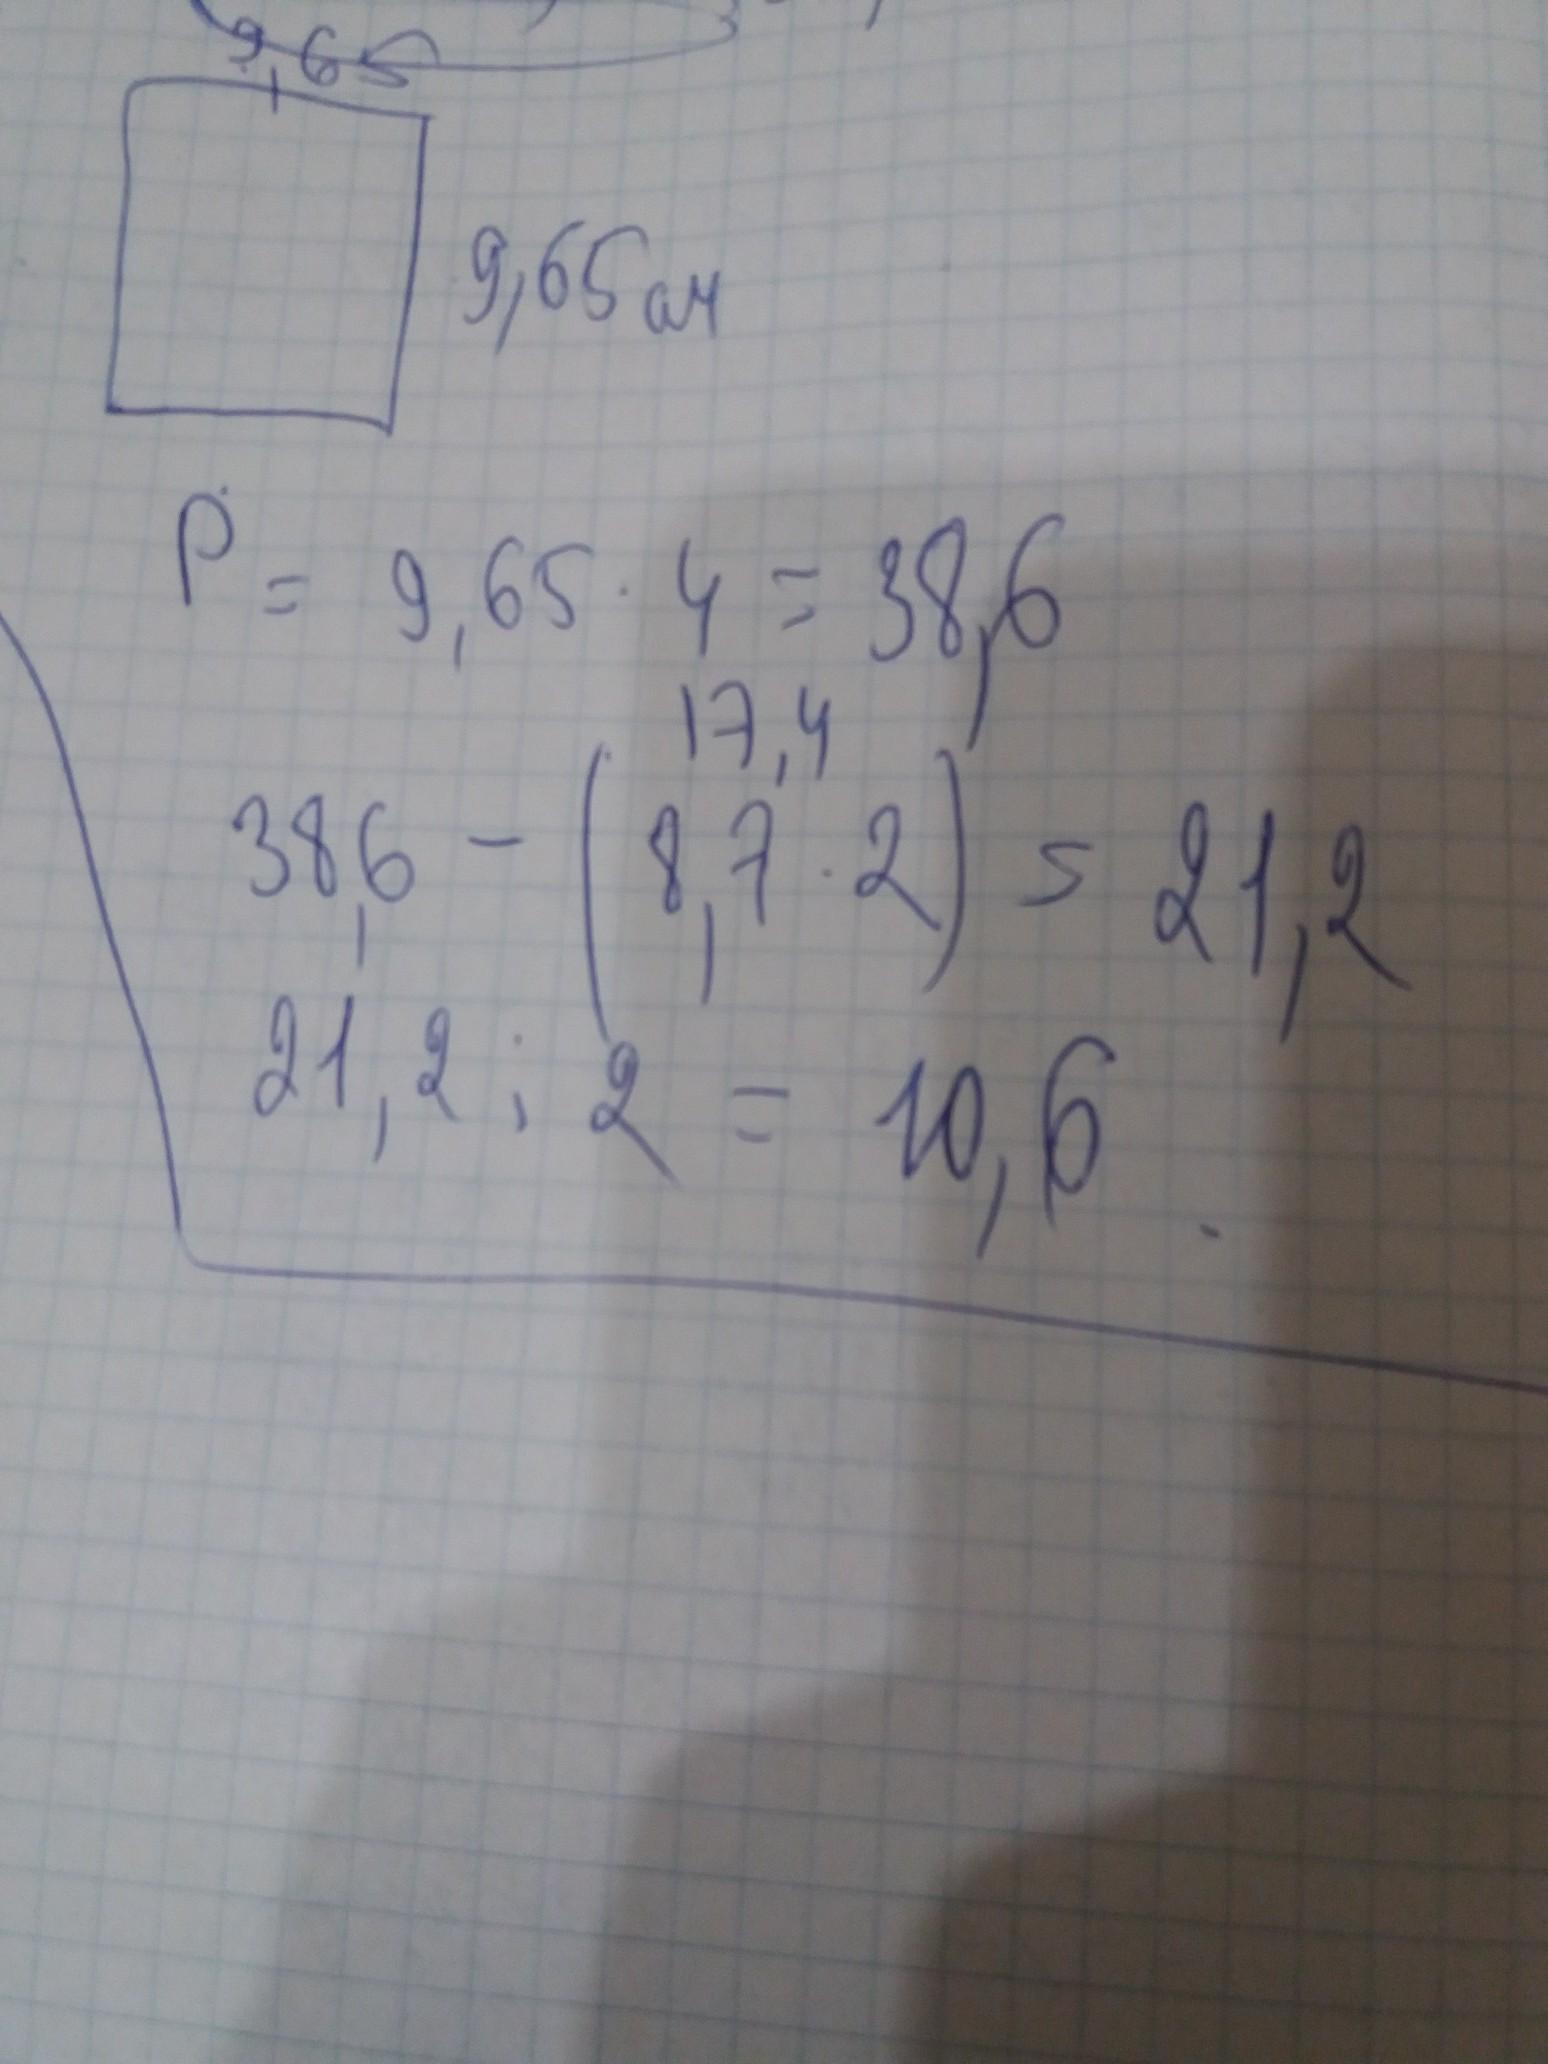 9,65
9,65 см
P = 9,65 · 4 = 38,6
17,4
38,6 - (8,7 · 2) = 21,2
21,2 : 2 = 10,6